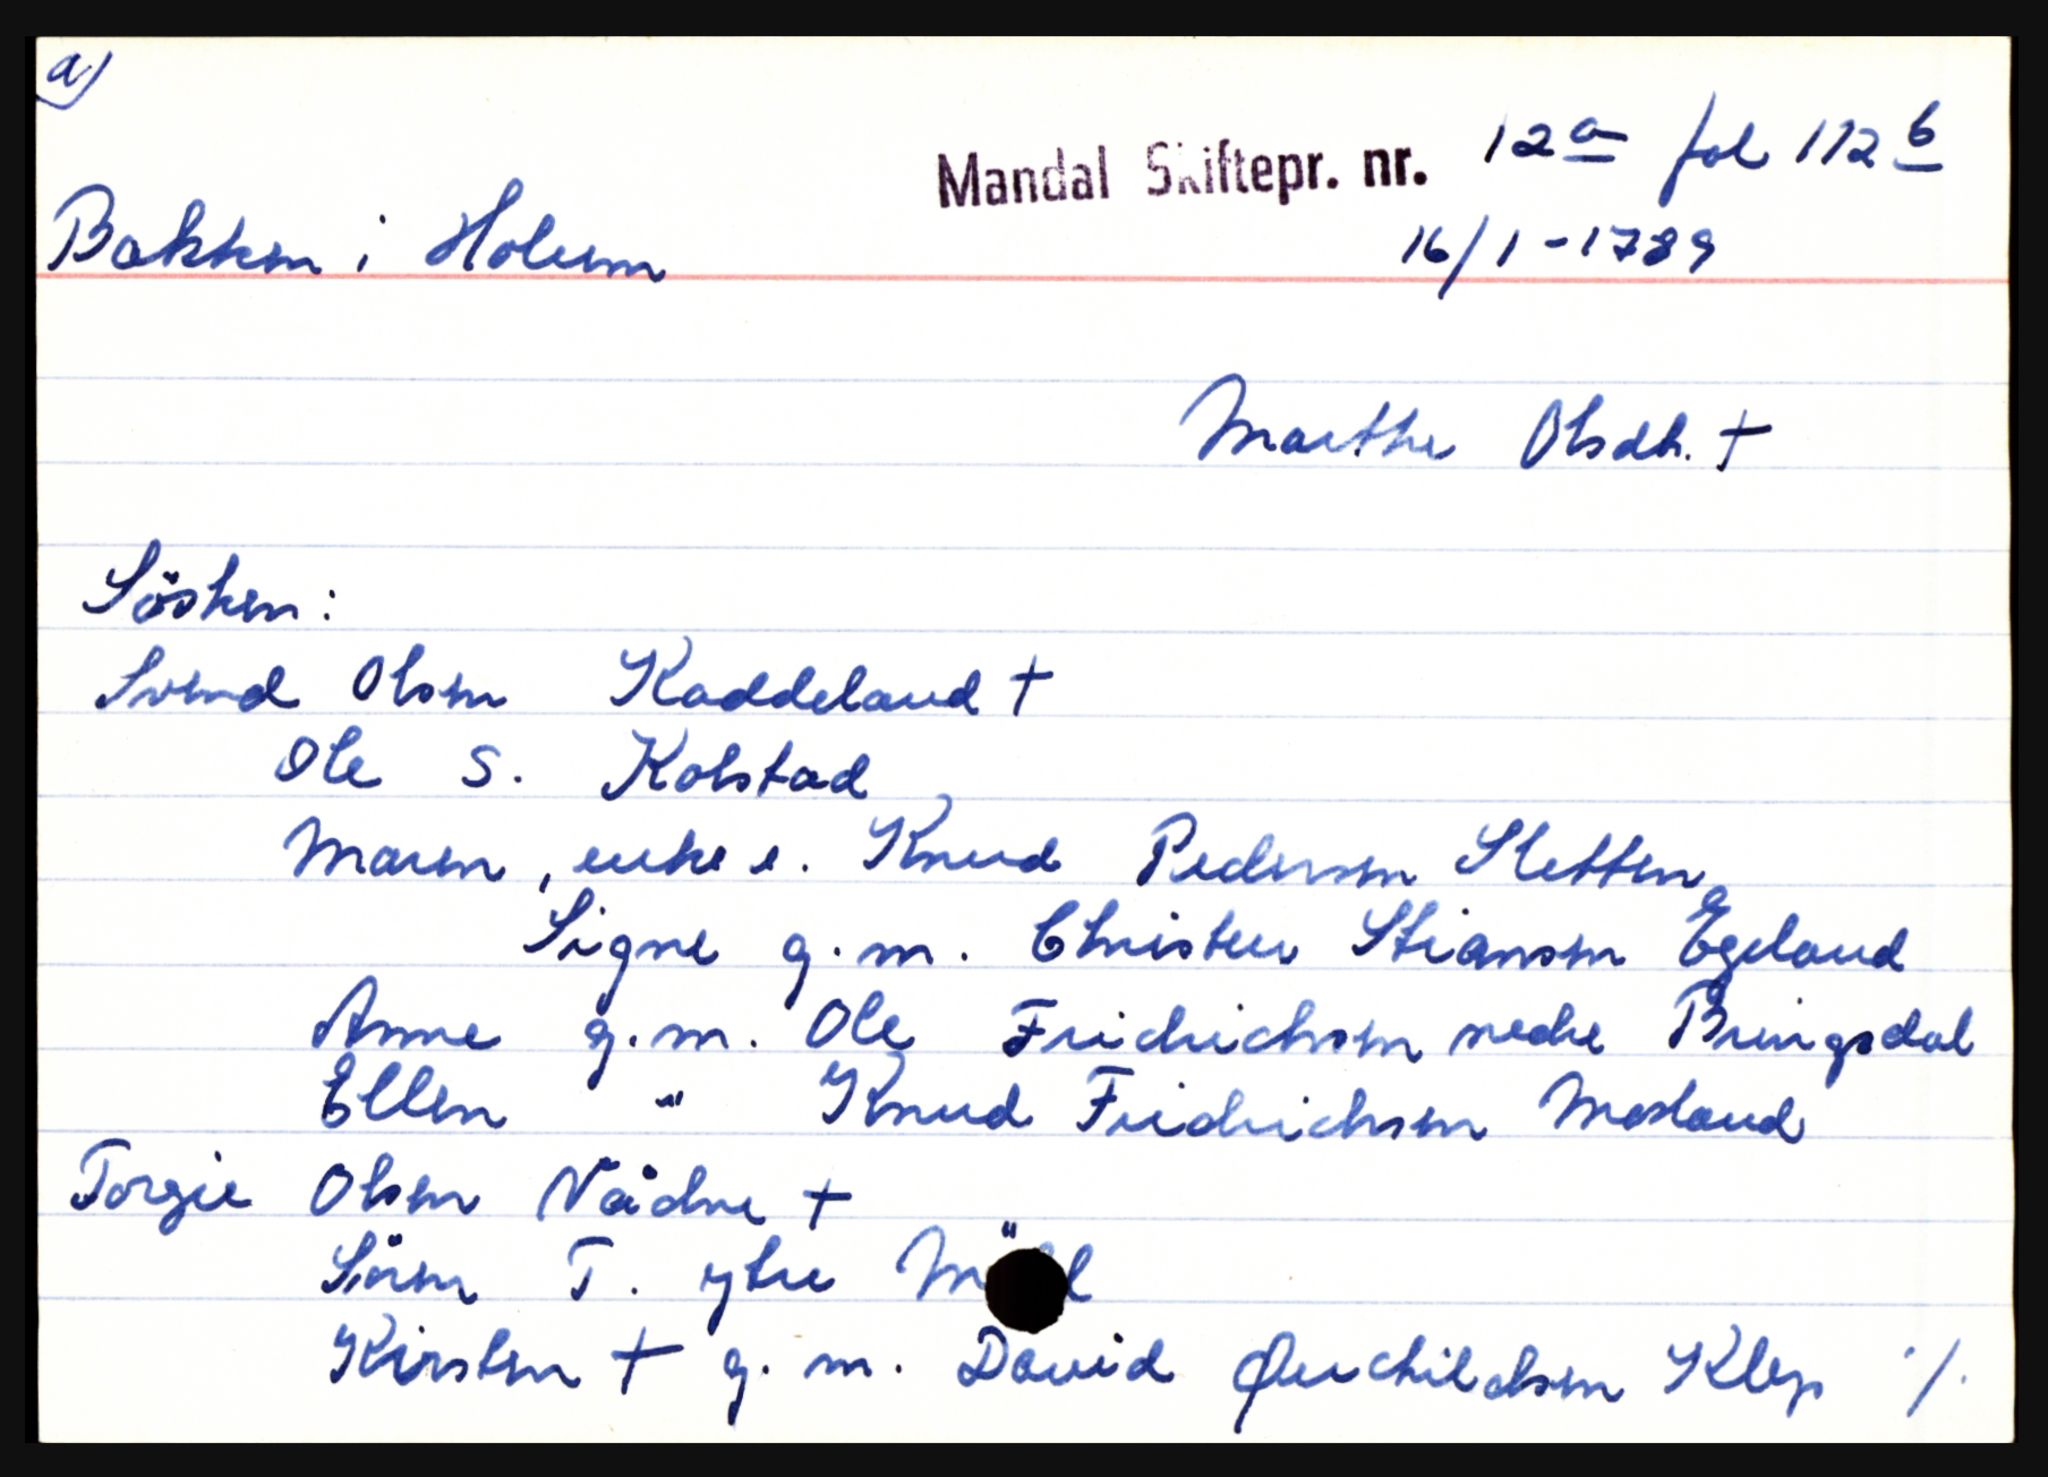 a)
Mandal Skiftepr. nr. 12a fol 112b
Bakken i Holum 16/1-1789
Marthe Olsdt. †
Sösken:
Svend Olsen Kaddeland †
Ole S. Kolstad
Maren, enke e. Knud Pedersen Sletten
Signe g.m. Christen Stiansen Egeland
Anne g.m. Ole Fridrichsen nedre Bringsdal
Ellen " Knud Fridrichsen Mosland
Torgie Olsen Nödne †
Sören T. ytre
Kirsten † g.m. David Klep ./.